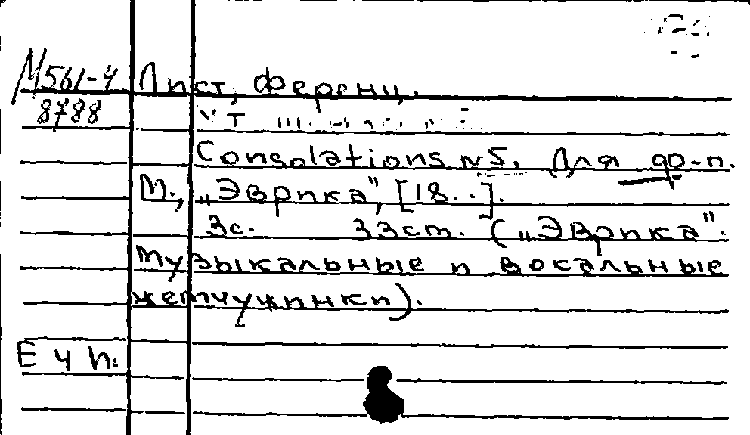 М561-4 Лист, Ференц.
8788
Consolations N5. Для ф-п.
М., „Эврика", [18..].
3с. 33см. („Эврика".
Музыкальные и вокальные
жемчужинки).
Е ч п.